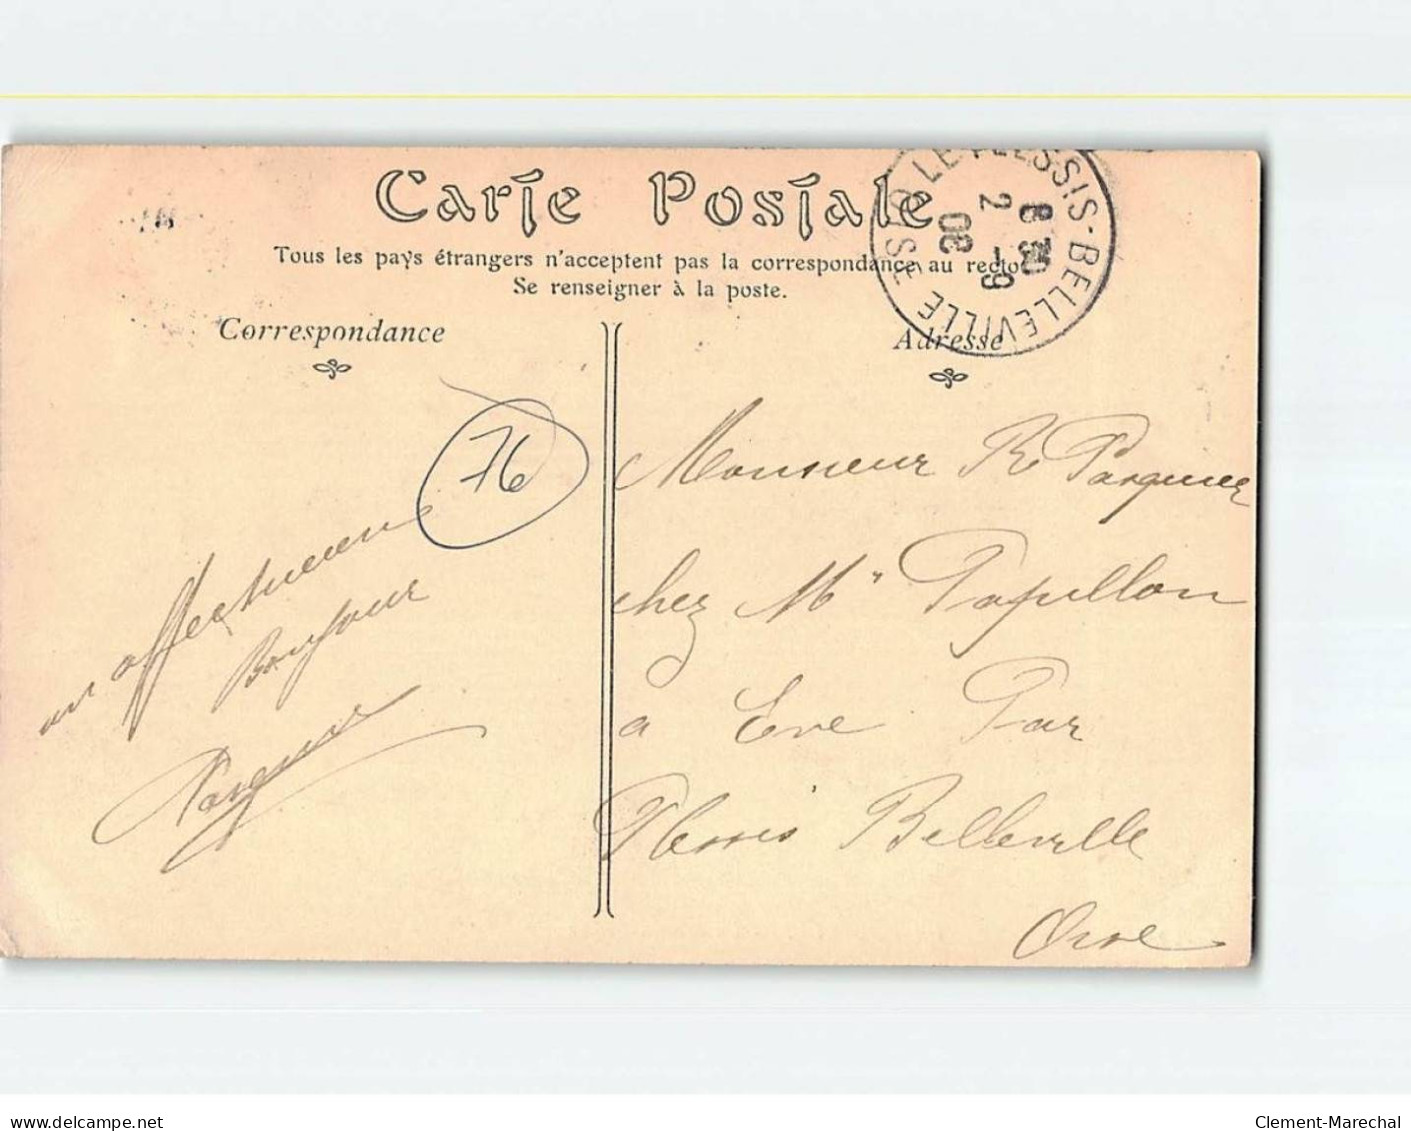 Carte Postale
Tous les pays étrangers n'acceptent pas la correspondance au recto
Se renseigner à la poste.
LE PLESSIS-BELLEVILLE OISE
8 30
2 -9
08
Correspondance
Adresse
76
un affectueux
Bonjour
Monsieur R Parquier
chez Mr Papillon
a Eve Par
Plessis Belleville
Oise
www.delcampe.net
Clement-Marechal